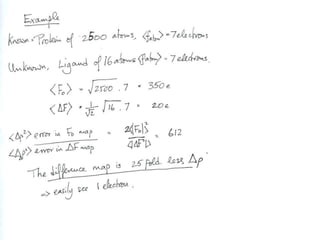 Example
Known = Protein of 2500 atoms, <f_atom> = 7 electrons
Unknown, Ligand of 16 atoms <f_atom> = 7 electrons.
<F_o> = √2500 . 7 = 350 e
<ΔF> = 1/√2 √16 . 7 = 20 e
<Δρ²> error in F_o map / <Δρ²> error in ΔF map = 2<|F_o|²> / <|ΔF|²> = 612
The difference map is 25 fold less Δρ
⇒ easily see 1 electron.